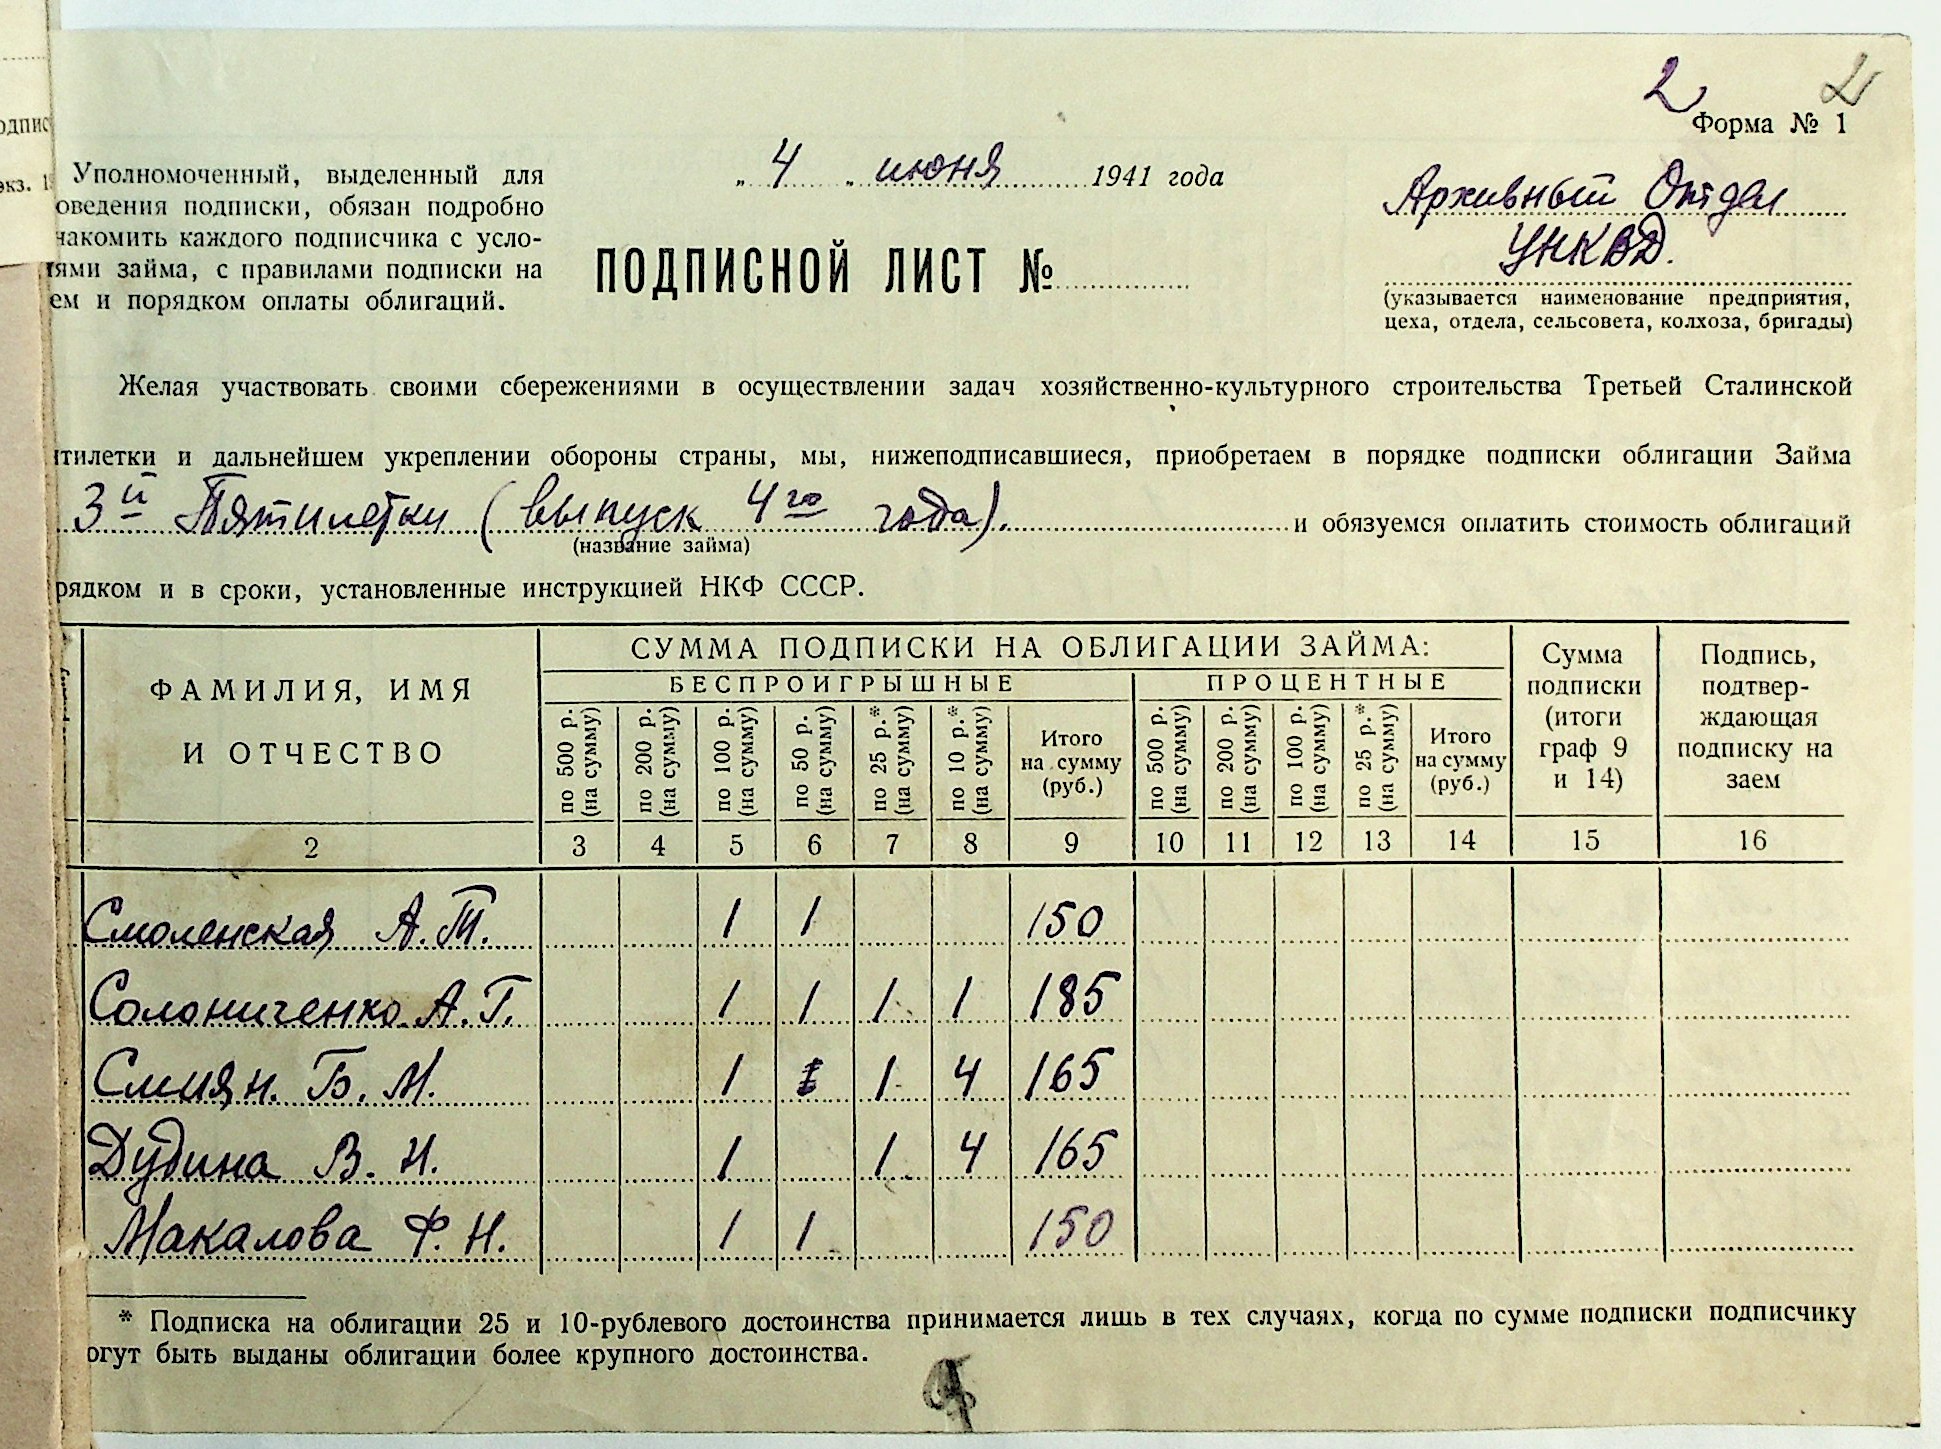 2 2
Форма № 1
одпис
экз. 1
Уполномоченный, выделенный для
оведения подписки, обязан подробно
накомить каждого подписчика с усло-
иями займа, с правилами подписки на
ем и порядком оплаты облигаций.
„ 4 „ июня 1941 года
ПОДПИСНОЙ ЛИСТ №
Архивный Отдел
УНКВД.
(указывается наименование предприятия,
цеха, отдела, сельсовета, колхоза, бригады)
Желая участвовать своими сбережениями в осуществлении задач хозяйственно-культурного строительства Третьей Сталинской
тилетки и дальнейшем укреплении обороны страны, мы, нижеподписавшиеся, приобретаем в порядке подписки облигации Займа
3й Пятилетки (выпуск 4го года). и обязуемся оплатить стоимость облигаций
(название займа)
рядком и в сроки, установленные инструкцией НКФ СССР.
ФАМИЛИЯ, ИМЯ
И ОТЧЕСТВО
СУММА ПОДПИСКИ НА ОБЛИГАЦИИ ЗАЙМА:
БЕСПРОИГРЫШНЫЕ
ПРОЦЕНТНЫЕ
по 500 р.
(на сумму)
по 200 р.
(на сумму)
по 100 р.
(на сумму)
по 50 р.
(на сумму)
по 25 р.*
(на сумму)
по 10 р.*
(на сумму)
Итого
на сумму
(руб.)
по 500 р.
(на сумму)
по 200 р.
(на сумму)
по 100 р.
(на сумму)
по 25 р.*
(на сумму)
Итого
на сумму
(руб.)
Сумма
подписки
(итоги
граф 9
и 14)
Подпись,
подтвер-
ждающая
подписку на
заем
2 3 4 5 6 7 8 9 10 11 12 13 14 15 16
Смоленская А.Т. 1 1 150
Солониченко А.Г. 1 1 1 1 185
Смиян. Б. М. 1 1 4 165
Дудина В. Н. 1 1 4 165
Макалова Ф. Н. 1 1 150
* Подписка на облигации 25 и 10-рублевого достоинства принимается лишь в тех случаях, когда по сумме подписки подписчику
огут быть выданы облигации более крупного достоинства.